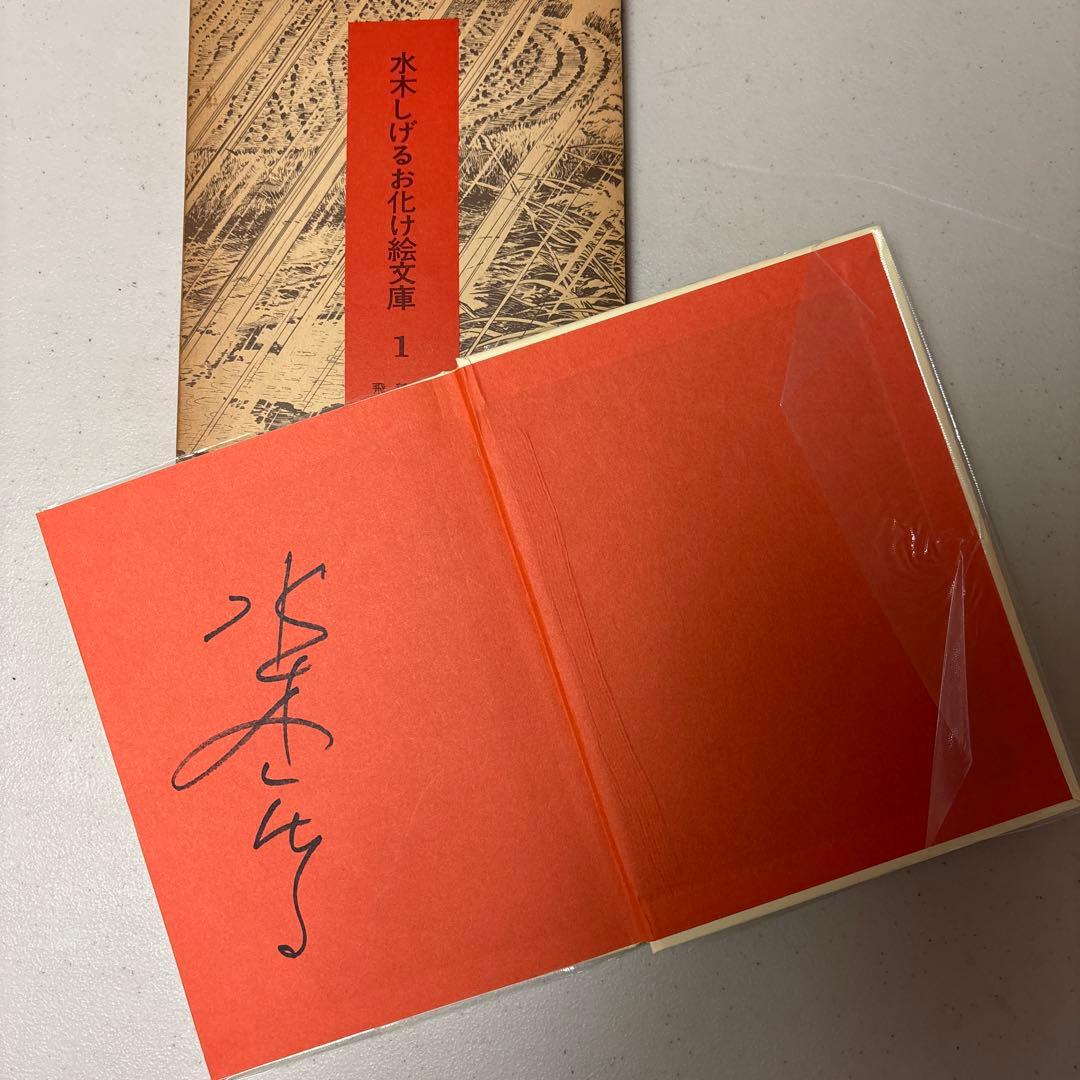 水木しげるお化け絵文庫 1
飛
水木しげる